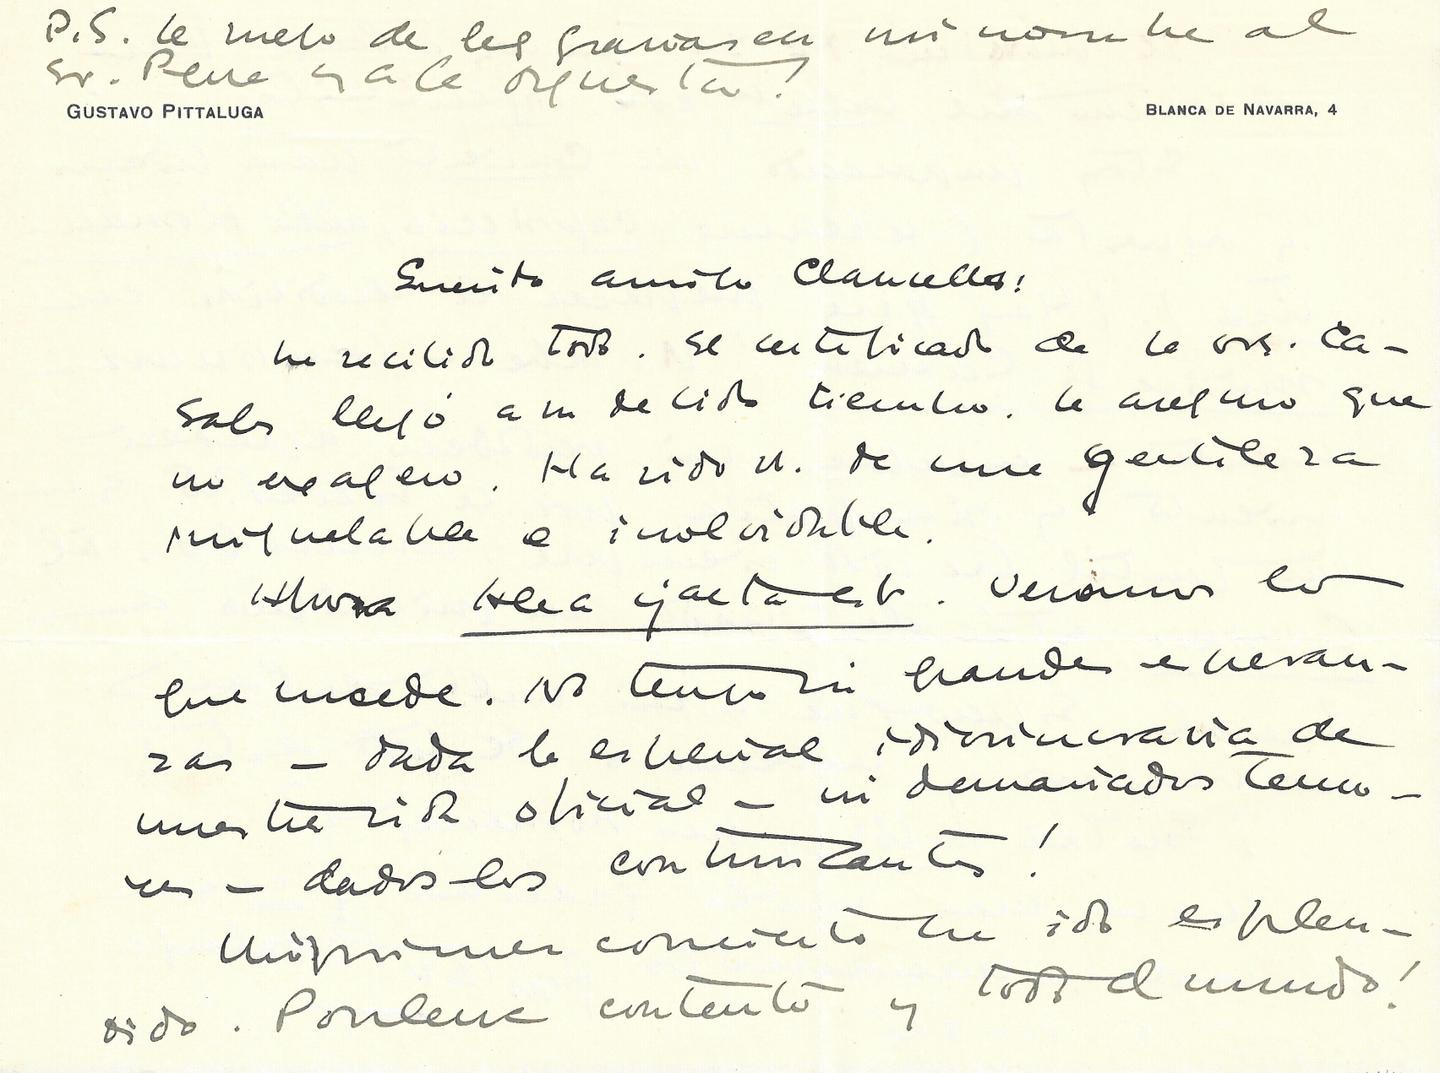 P.S. Le ruego dé las gracias en mi nombre al
Sr. Pene y a la orquesta!
GUSTAVO PITTALUGA
BLANCA DE NAVARRA, 4
Querido amigo Clausells:
he recibido todo. El certificado de la orq. Ca-
sals llegó a su debido tiempo. Le aseguro que
no exagero. Ha sido V. de una gentileza
inigualable e inolvidable.
Ahora Alea jacta est. Veremos lo
que sucede. No tengo ni grandes esperan-
zas – dada la especial idiosincrasia de
nuestra vida oficial – ni demasiados temo-
res – dados los contrincantes!
Mi primer concierto ha ido esplen-
dido. Poulenc contento y todo el mundo!